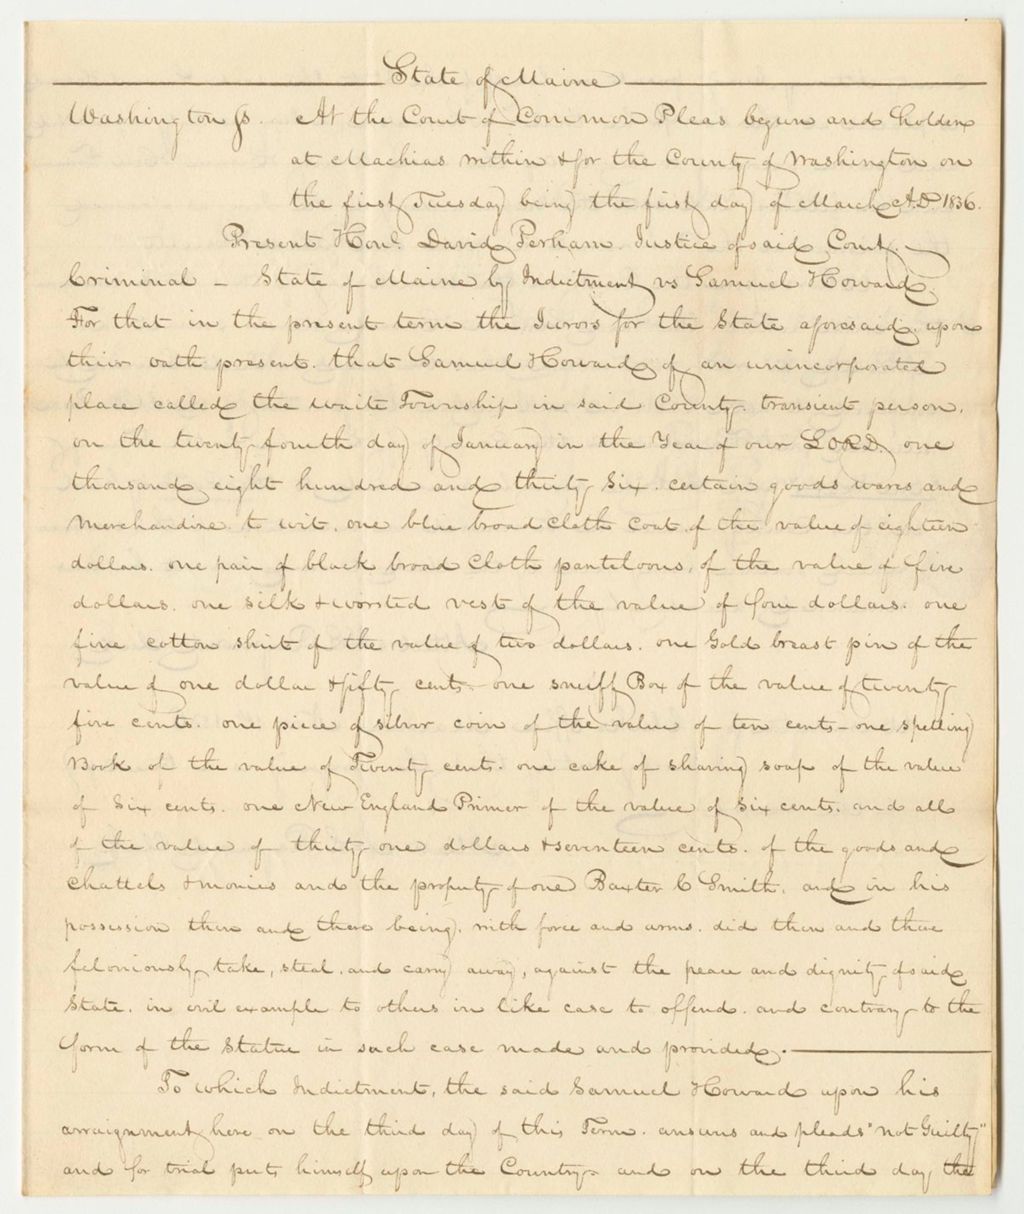 State of Maine
Washington ss. At the Court of Common Pleas begun and holden
at Machias within & for the County of Washington on
the first Tuesday being the first day of March A.D. 1836.
Present Hon. David Perham Justice of said Court.
Criminal – State of Maine by Indictment vs Samuel Howard.
For that in the present term the Jurors for the State aforesaid, upon
their oath present. that Samuel Howard of an unincorporated
place called the waite Township in said County. transient person,
on the twenty fourth day of January in the Year of our LORD. one
thousand eight hundred and thirty six. certain goods wares and
Merchandize. to wit. one blue broad cloth coat, of the value of eighteen
dollars. one pair of black broad cloth panteloons, of the value of five
dollars. one silk & worsted vest of the value of four dollars. one
fine cotton shirt of the value of two dollars. one Gold breast pin of the
value of one dollar & fifty cents – one snuff Box of the value of twenty
five cents. one piece of silver coin of the value of ten cents – one spelling
Book of the value of Twenty cents. one cake of shaving soap of the value
of six cents. one New England Primer of the value of six cents. and all
of the value of thirty one dollars & seventeen cents. of the goods and
chattels & monies and the property of one Baxter C Smith. and in his
possession then and there being, with force and arms. did then and there
feloniously take, steal, and carry away, against the peace and dignity of said
State. in evil example to others in like case to offend. and contrary to the
form of the Statue in such case made and provided.
To which Indictment, the said Samuel Howard upon his
arraignment here on the third day of this Term. answers and pleads "not Guilty"
and for trial puts himself upon the Country – and on the third day the